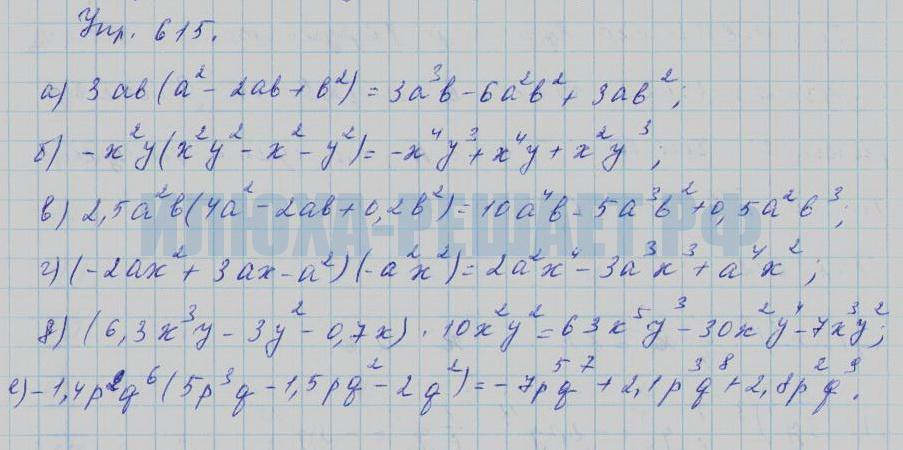 Упр. 615.
а) 3ab(a² - 2ab + b²) = 3a³b - 6a²b² + 3ab²;
б) -x²y(x²y² - x² - y²) = -x⁴y³ + x⁴y + x²y³;
в) 2,5a²b(4a² - 2ab + 0,2b²) = 10a⁴b - 5a³b² + 0,5a²b³;
ИЛЮХА-РЕШАЕТ.РФ
г) (-2ax² + 3ax - a²)(-a²x²) = 2a²x⁴ - 3a³x³ + a⁴x²;
д) (6,3x³y - 3y² - 0,7x) · 10x²y² = 63x⁵y³ - 30x²y⁴ - 7x³y²;
е) -1,4p²q⁶(5p³q - 1,5pq² - 2q²) = -7p⁵q⁷ + 2,1p³q⁸ + 2,8p²q⁹.